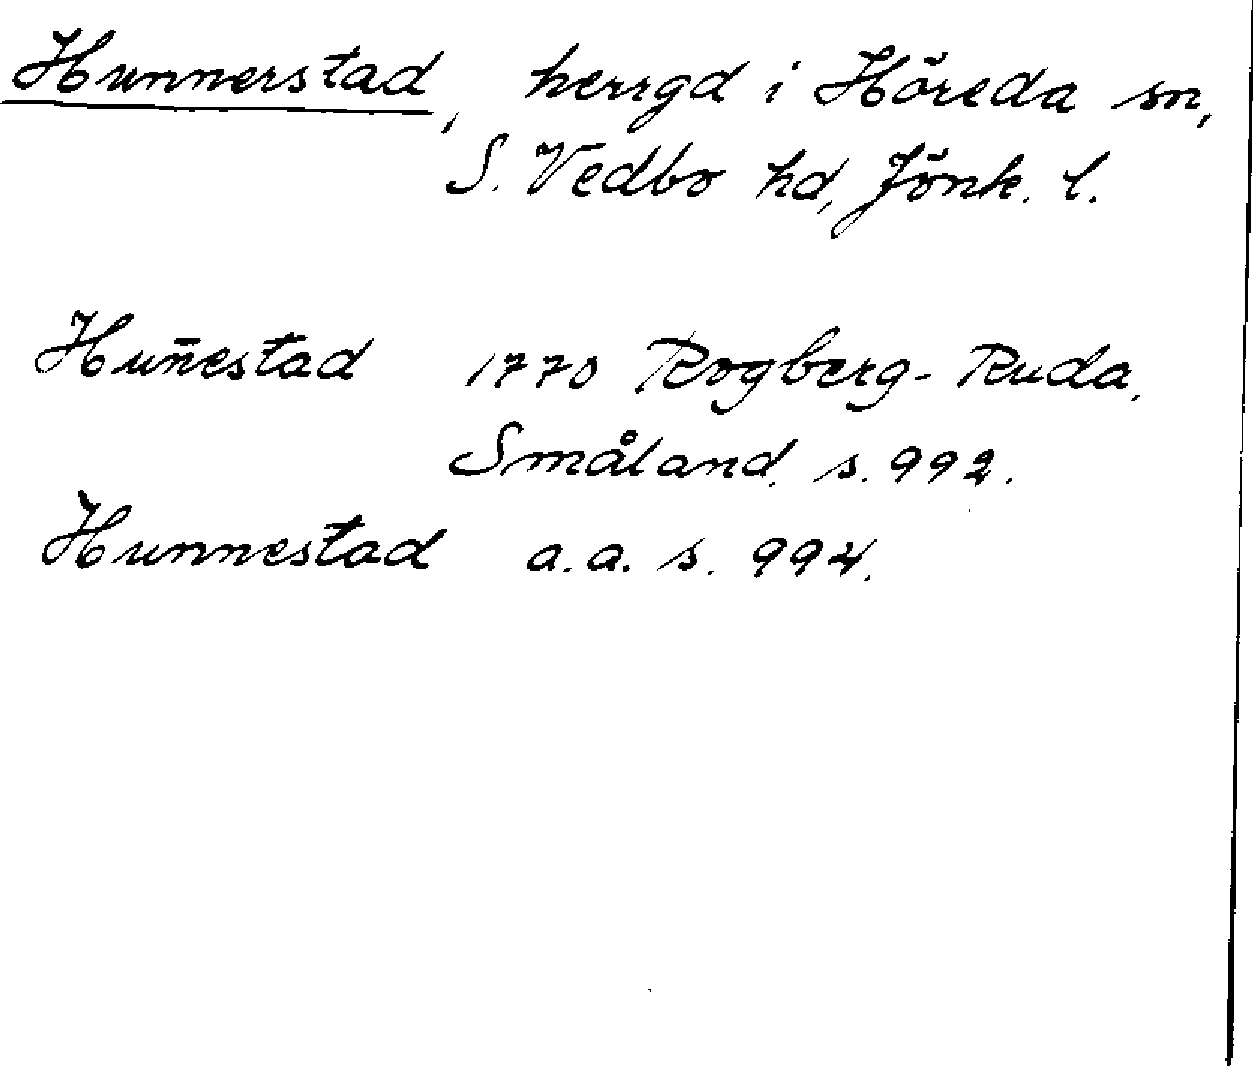 Hunnerstad, herrgd i Höreda sn,
S. Vedbo hd, Jönk. l.
Hun̄estad 1770 Rogberg-Ruda,
Småland, s. 992.
Hunnestad a.a. s. 994.